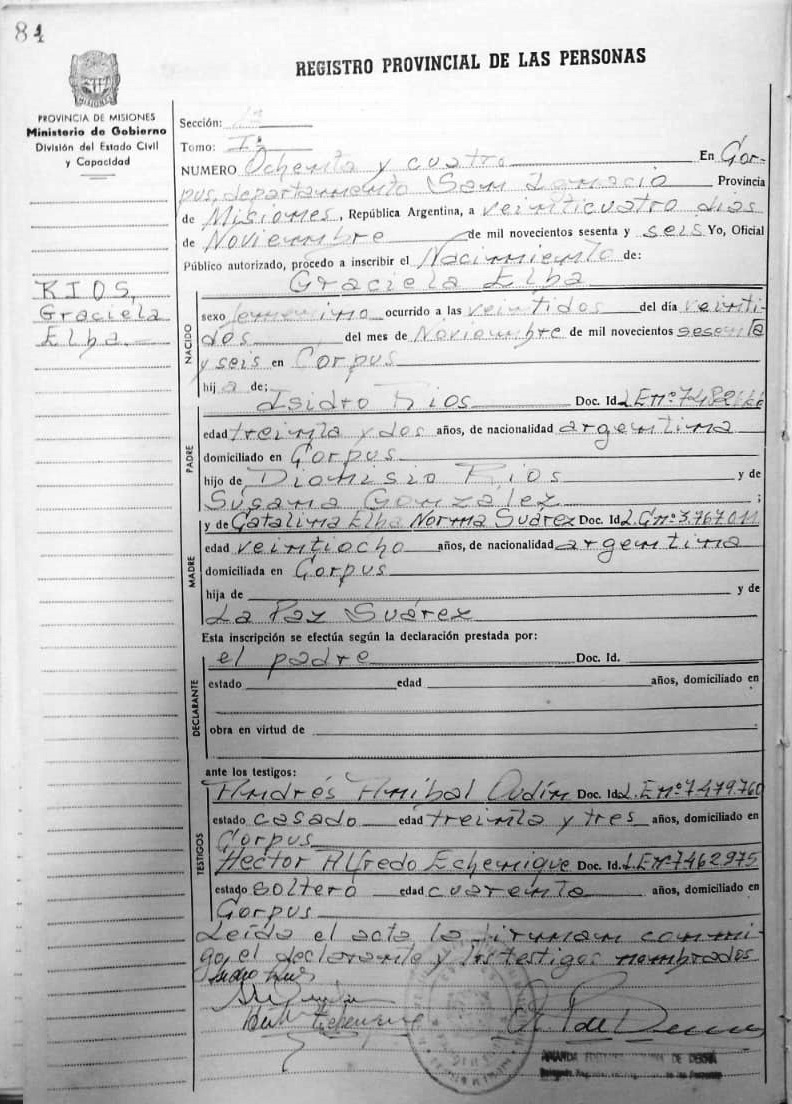 84
REGISTRO PROVINCIAL DE LAS PERSONAS
PROVINCIA DE MISIONES
Ministerio de Gobierno
División del Estado Civil
y Capacidad
RIOS,
Graciela
Elba
Sección:
Tomo: Iº
NUMERO Ochenta y cuatro En Cor-
pus, departamento San Ignacio Provincia
de Misiones, República Argentina, a veinticuatro dias
de Noviembre de mil novecientos sesenta y seis Yo, Oficial
Público autorizado, procedo a inscribir el Nacimiento de:
Graciela Elba
NACIDO
sexo femenino ocurrido a las veintidos del día veinti-
dos del mes de Noviembre de mil novecientos sesenta
y seis en Corpus
hija de;
Isidro Rios Doc. Id. L.E nº
PADRE
edad treinta y dos años, de nacionalidad argentina
domiciliado en Corpus
hijo de Dionisio Rios y de
Susana Gonzalez ;
y de Catalina Elba Norma Suárez Doc. Id. L.C nº 3.767.011
MADRE
edad veintiocho años, de nacionalidad argentina
domiciliada en Corpus
hija de y de
La Paz Suárez
Esta inscripción se efectúa según la declaración prestada por:
el padre Doc. Id.
DECLARANTE
estado edad años, domiciliado en
obra en virtud de
ante los testigos:
TESTIGOS
Andrés Anibal Doc. Id. L.E nº 7.479.760
estado casado edad treinta y tres años, domiciliado en
Corpus
Hector Alfredo Echenique Doc. Id. L.E nº 7462975
estado soltero edad cuarenta años, domiciliado en
Corpus
Leída el acta la firman conmi-
go, el declarante y los testigos nombrados
Isidro Rios
DE